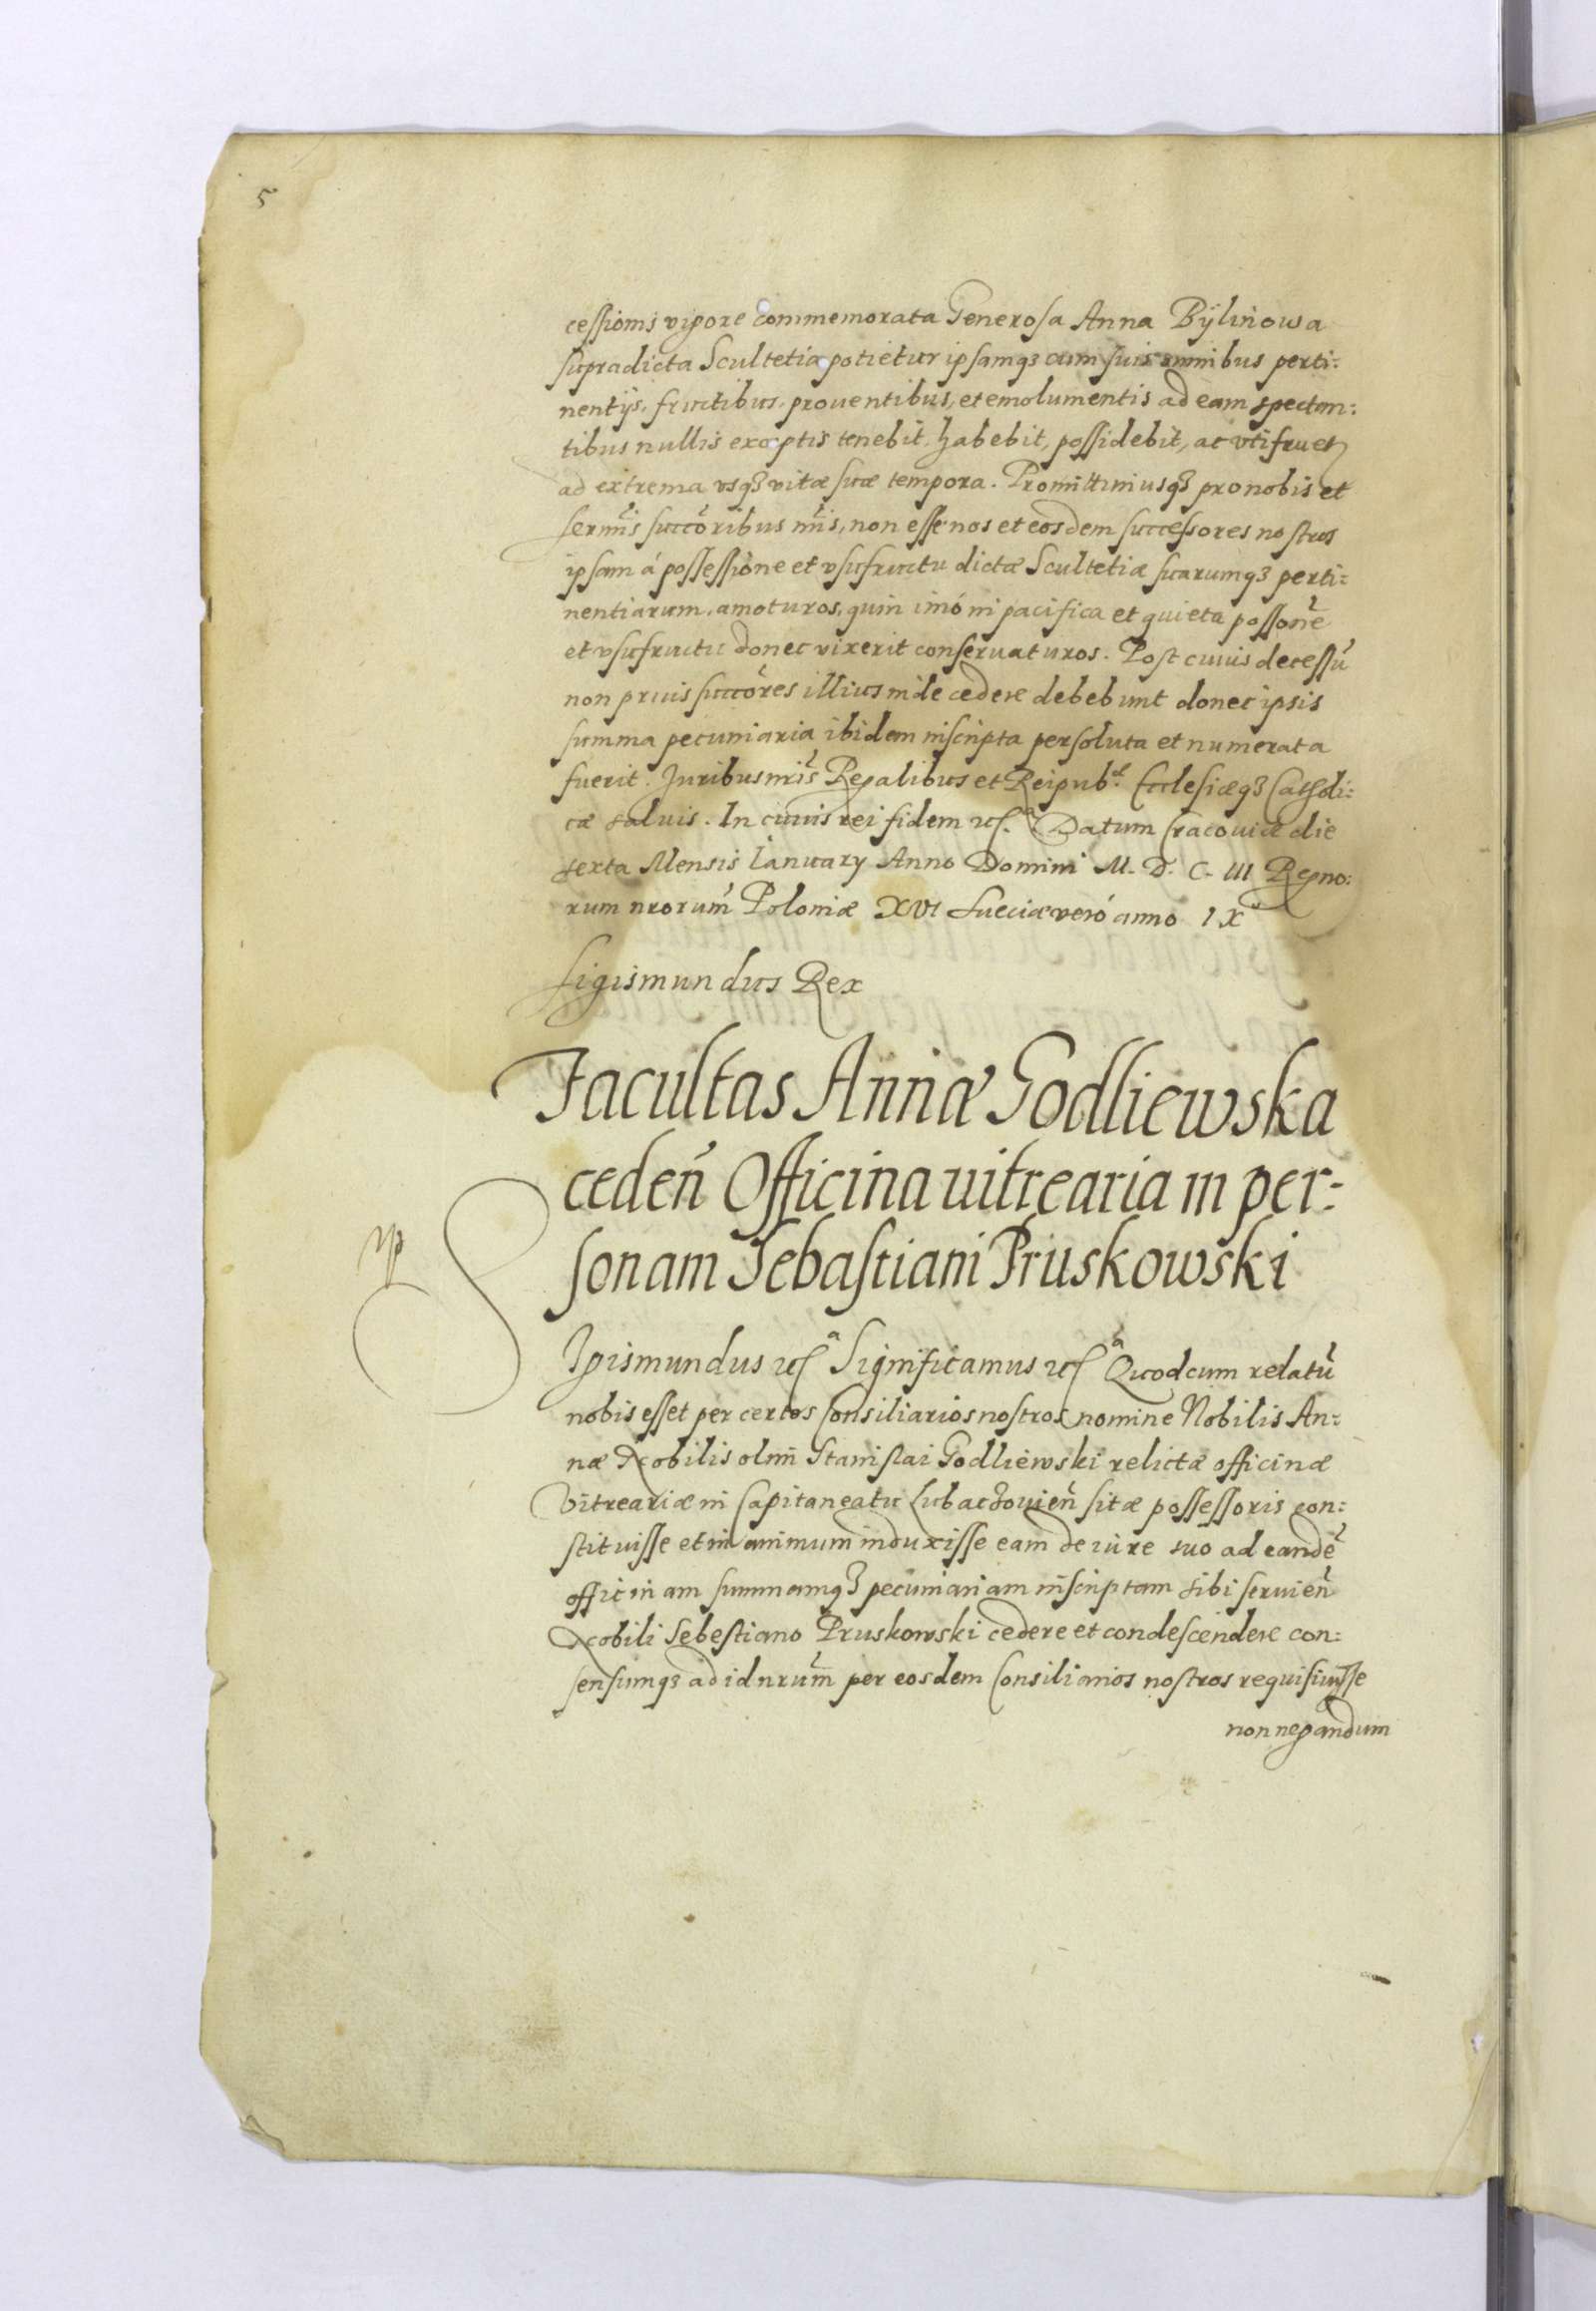 5
cessionis vigore commemorata Generosa Anna Bÿlinowa
supradicta Scultetia potietur ipsamqȝ cum suis omnibus perti=
nentijs, fructibus, prouentibus, et emolumentis ad eam spectan=
tibus nullis exceptis tenebit, habebit, possidebit, ac vtifruet
ad extrema vsqȝ vitæ suæ tempora. Promittimusqȝ pro nobis et
serm̃is succõribus nr̃is, non esse nos et eosdem successores nostros
ipsam á possessione et vsufructu dictæ Scultetiæ suarumqȝ perti=
nentiarum, amoturos, quin imó in pacifica et quieta possonẽ
et vsufructu donec vixerit conseruaturos. Post cuius decessũ
non prius succõres illius inde cedere debebunt donec ipsis
summa pecuniaria ibidem inscripta persoluta et numerata
fuerit. Juribus nr̃is Regalibus et Reipub. Ecclesiæqȝ Catholi=
cæ saluis. In cuius rei fidem etc. Datum Cracouiæ die
sexta Mensis Ianuarÿ Anno Domini M. D. C. III Regno=
rum nrorum̃ Poloniæ XVI Sueciæ veró anno IX
Sigismundus Rex
Facultas Annæ Godliewska
cedeñ Officina uitrearia in per=
sonam Sebastiani Pruskowski
Sigismundus etc Significamus etc Quod cum relatũ
nobis esset per certos Consiliarios nostros nomine Nobilis An=
næ Nobilis olim Stanislai Godliewski relictæ officinæ
Vitreariæ in Capitaneatu Lubachouieñ sitæ possessoris con=
stituisse et in animum induxisse eam de iure suo ad eandẽ
officinam summamqȝ pecuniariam inscriptam sibi seruieñ
Nobili Sebestiano Pruskowski cedere et condescendere con=
sensumqȝ ad id nrum̃ per eosdem Consiliarios nostros requisiuisse
non negandum